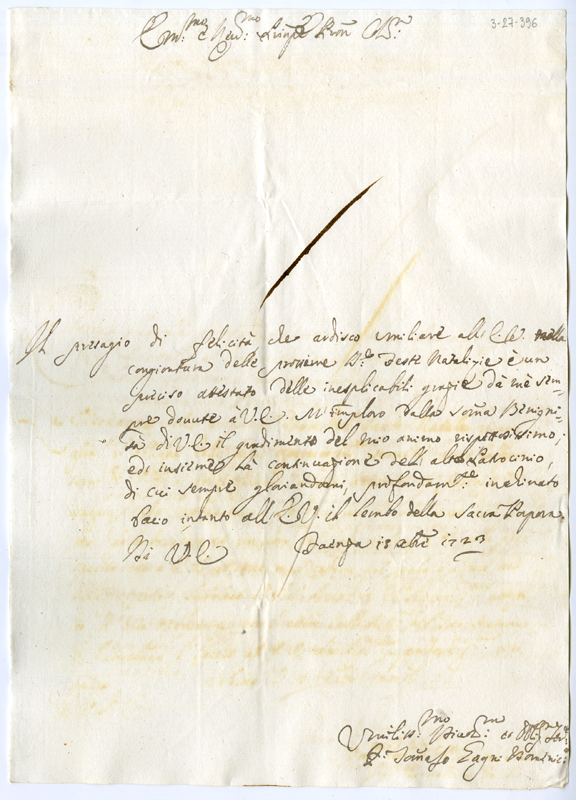 3-27-396
Em:mo e Reu:mo Prinpe Pron
Il presagio di felicità che ardisco umiliare all'E.V. nella
congiontura delle prossime S.te Feste Natalizie è un
preciso attestato delle inesplicabili grazie da me sem-
pre dovute à V.E. M'imploro dalla somma Benigni-
tà di V.E. il gradimento del mio animo rispettosissimo,
ed insieme la continuazione dell'alto Patrocinio,
di cui sempre gloriandomi, profondam.te inclinato
bacio intanto all'E.V. il lembo della Sacra Porpora
Di V.E. Faenza 18 xbre 1723
Umiliss:mo Diuot:mo et Obl:
F. Tomaso Domenic: